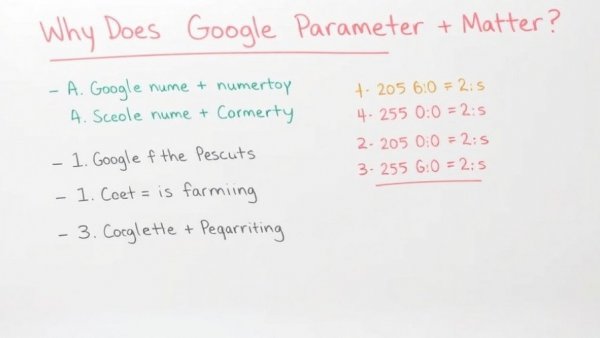 Why Does Google Parameter + Matter?
- A. Google nume + numertoy
A. Sceole nume + Cormerty
- 1. Google f the Pescuts
- 1. Coet = is farmiing
- 3. Cocgletle + Peqarriting
1- 205 6:0 = 2:s
4- 255 0:0 = 2:s
2- 205 0:0 = 2:s
3- 255 6:0 = 2:s